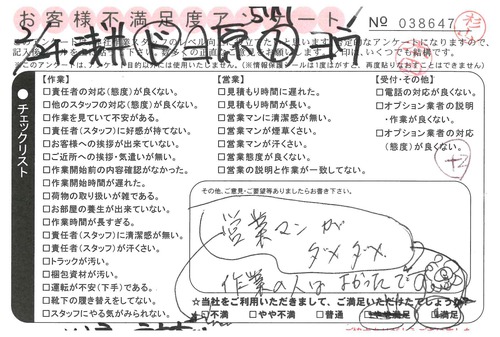 お客様不満足度アンケート
No 038647
チェックリスト
【作業】
□責任者の対応(態度)が良くない。
□他のスタッフの対応(態度)が良くない。
□作業を見ていて不安がある。
□責任者(スタッフ)に好感が持てない。
□お客様への挨拶が出来ていない。
□ご近所への挨拶・気遣いが無い。
□作業開始前の内容確認がなかった。
□作業開始時間が遅れた。
□荷物の取り扱いが雑である。
□お部屋の養生が出来ていない。
□作業時間が長すぎる。
□責任者(スタッフ)に清潔感が無い。
□責任者(スタッフ)が汗くさい。
□トラックが汚い。
□梱包資材が汚い。
□運転が不安(下手)である。
□靴下の履き替えをしてない。
□スタッフにやる気がみられない。
【営業】
□見積もり時間に遅れた。
□見積もり時間が長い。
□営業マンに清潔感が無い。
□営業マンが煙草くさい。
□営業マンが汗くさい。
□営業態度が良くない。
□営業の説明と作業が一致してない。
【受付・その他】
□電話の対応が良くない。
□オプション業者の説明・作業が良くない。
□オプション業者の対応(態度)が良くない。
その他、ご意見・ご要望等ありましたらお書き下さい。
営業マンが
ダメダメ
作業の人はよかったで
☆当社をご利用いただきまして、ご満足いただけたでしょうか?
□不満 □やや不満 □普通 □やや満足 □満足